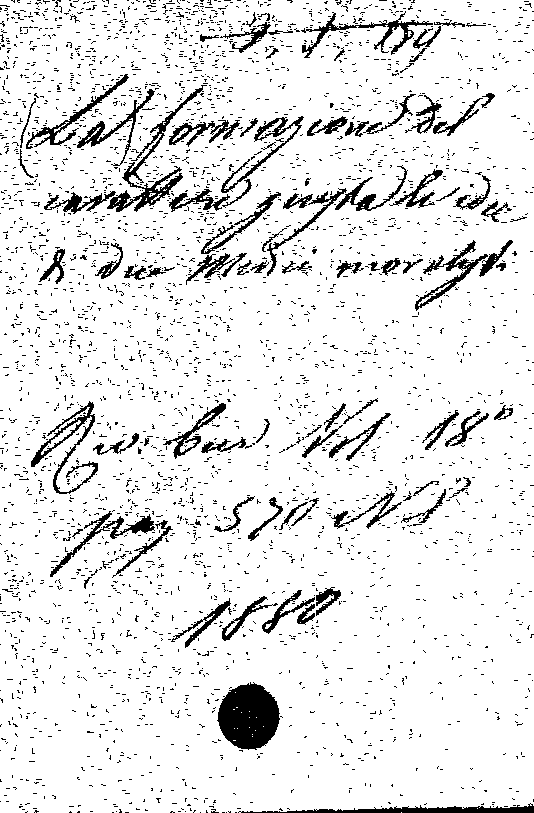 (La) formazione del
carattere giusta le idee
di due Medici moralisti
Riv. Eur. Vol 18º
pag. 570 N 8
1880